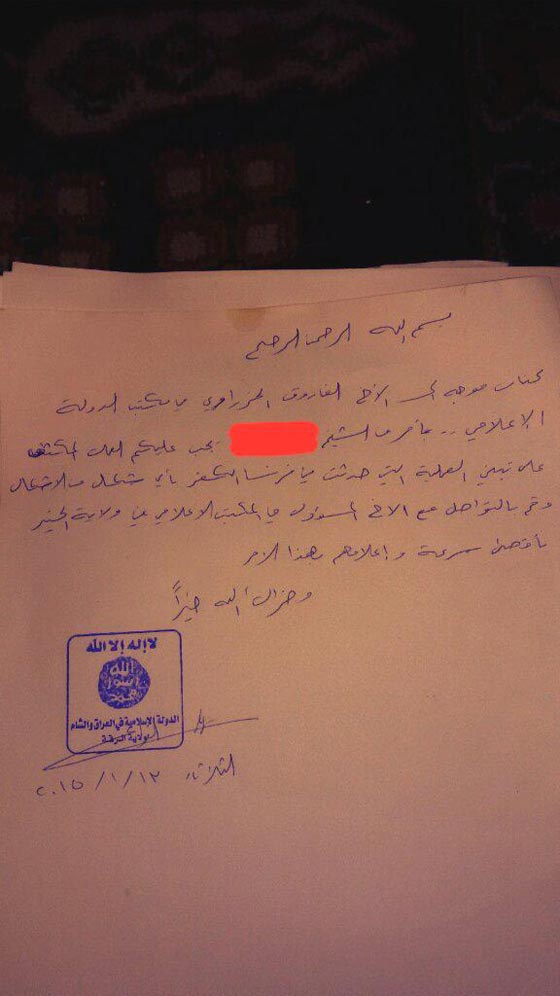 بسم الله الرحمن الرحيم
كتاب موجه إلى الأخ الفاروق الجزراوي في مكتب الدولة
الإعلامي .. بأمر من الشيخ يجب عليكم العمل المكثف
على تبني العملية التي حدثت في فرنسا الكفر بأي شكل من الأشكال
وقم بالتواصل مع الأخ المسؤول في المكتب الإعلامي في ولاية الخير
بأقصى سرعة وإعلامهم بهذا الأمر
وجزاك الله خيراً
لا إله إلا الله
الله
رسول
محمد
الدولة الإسلامية في العراق والشام
ولاية الرقة
الثلاثاء ١٣ / ١ / ٢٠١٥